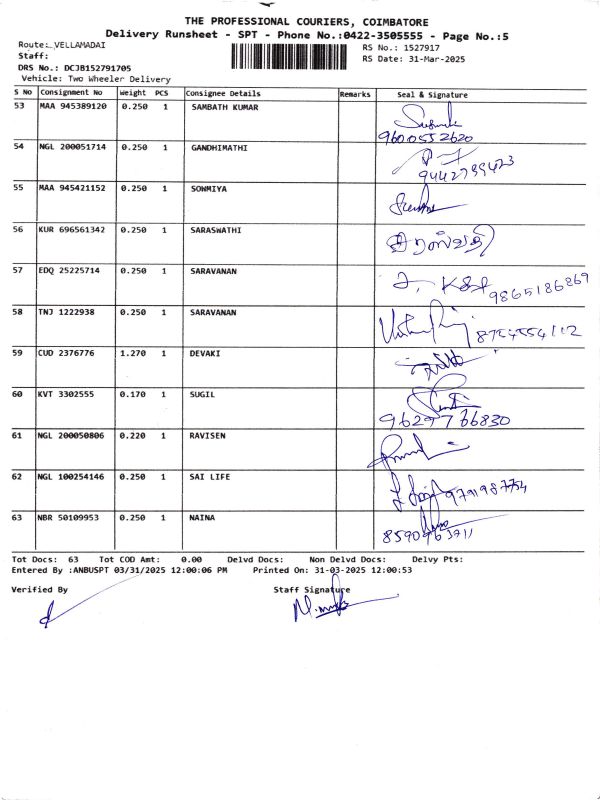 THE PROFESSIONAL COURIERS, COIMBATORE
Delivery Runsheet - SPT - Phone No.:0422-3505555 - Page No.:5
Route: VELLAMADAI RS No.: 1527917
Staff: RS Date: 31-Mar-2025
DRS No.: DCJB152791705
Vehicle: Two Wheeler Delivery
S No Consignment No Weight PCS Consignee Details Remarks Seal & Signature
53 MAA 945389120 0.250 1 SAMBATH KUMAR
9600552620
54 NGL 200051714 0.250 1 GANDHIMATHI
55 MAA 945421152 0.250 1 SOWMIYA
56 KUR 696561342 0.250 1 SARASWATHI
சரஸ்வதி
57 EDQ 25225714 0.250 1 SARAVANAN
9865186869
58 TNJ 1222938 0.250 1 SARAVANAN
8754554112
59 CUD 2376776 1.270 1 DEVAKI
60 KVT 3302555 0.170 1 SUGIL
9629766830
61 NGL 200050806 0.220 1 RAVISEN
62 NGL 100254146 0.250 1 SAI LIFE
9791987754
63 NBR 50109953 0.250 1 NAINA
Tot Docs: 63 Tot COD Amt: 0.00 Delvd Docs: Non Delvd Docs: Delvy Pts:
Entered By :ANBUSPT 03/31/2025 12:00:06 PM Printed On: 31-03-2025 12:00:53
Verified By Staff Signature